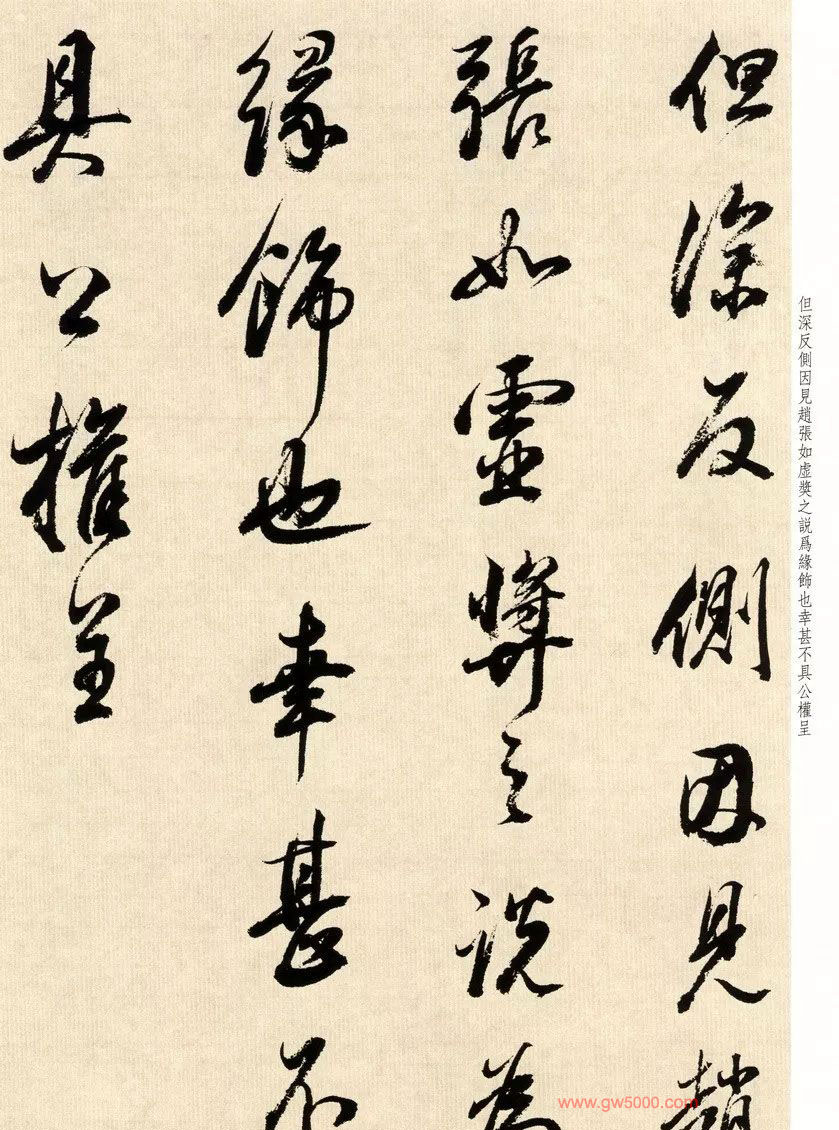 但深反側因見趙
張如虛奬之説為
緣飾也幸甚不
具公權呈
但深反側因見趙張如虛奬之説爲緣飾也幸甚不具公權呈
www.gw5000.com